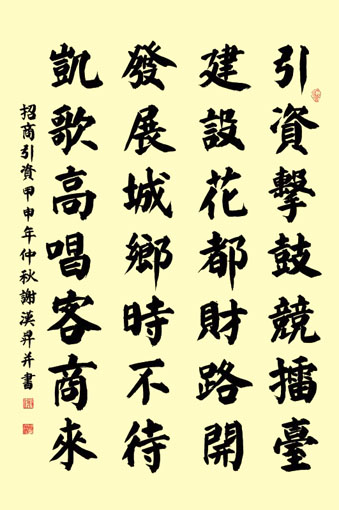 引資擊鼓競擂臺
建設花都財路開
發展城鄉時不待
凱歌高唱客商來
招商引資甲申年仲秋謝漢昇并書